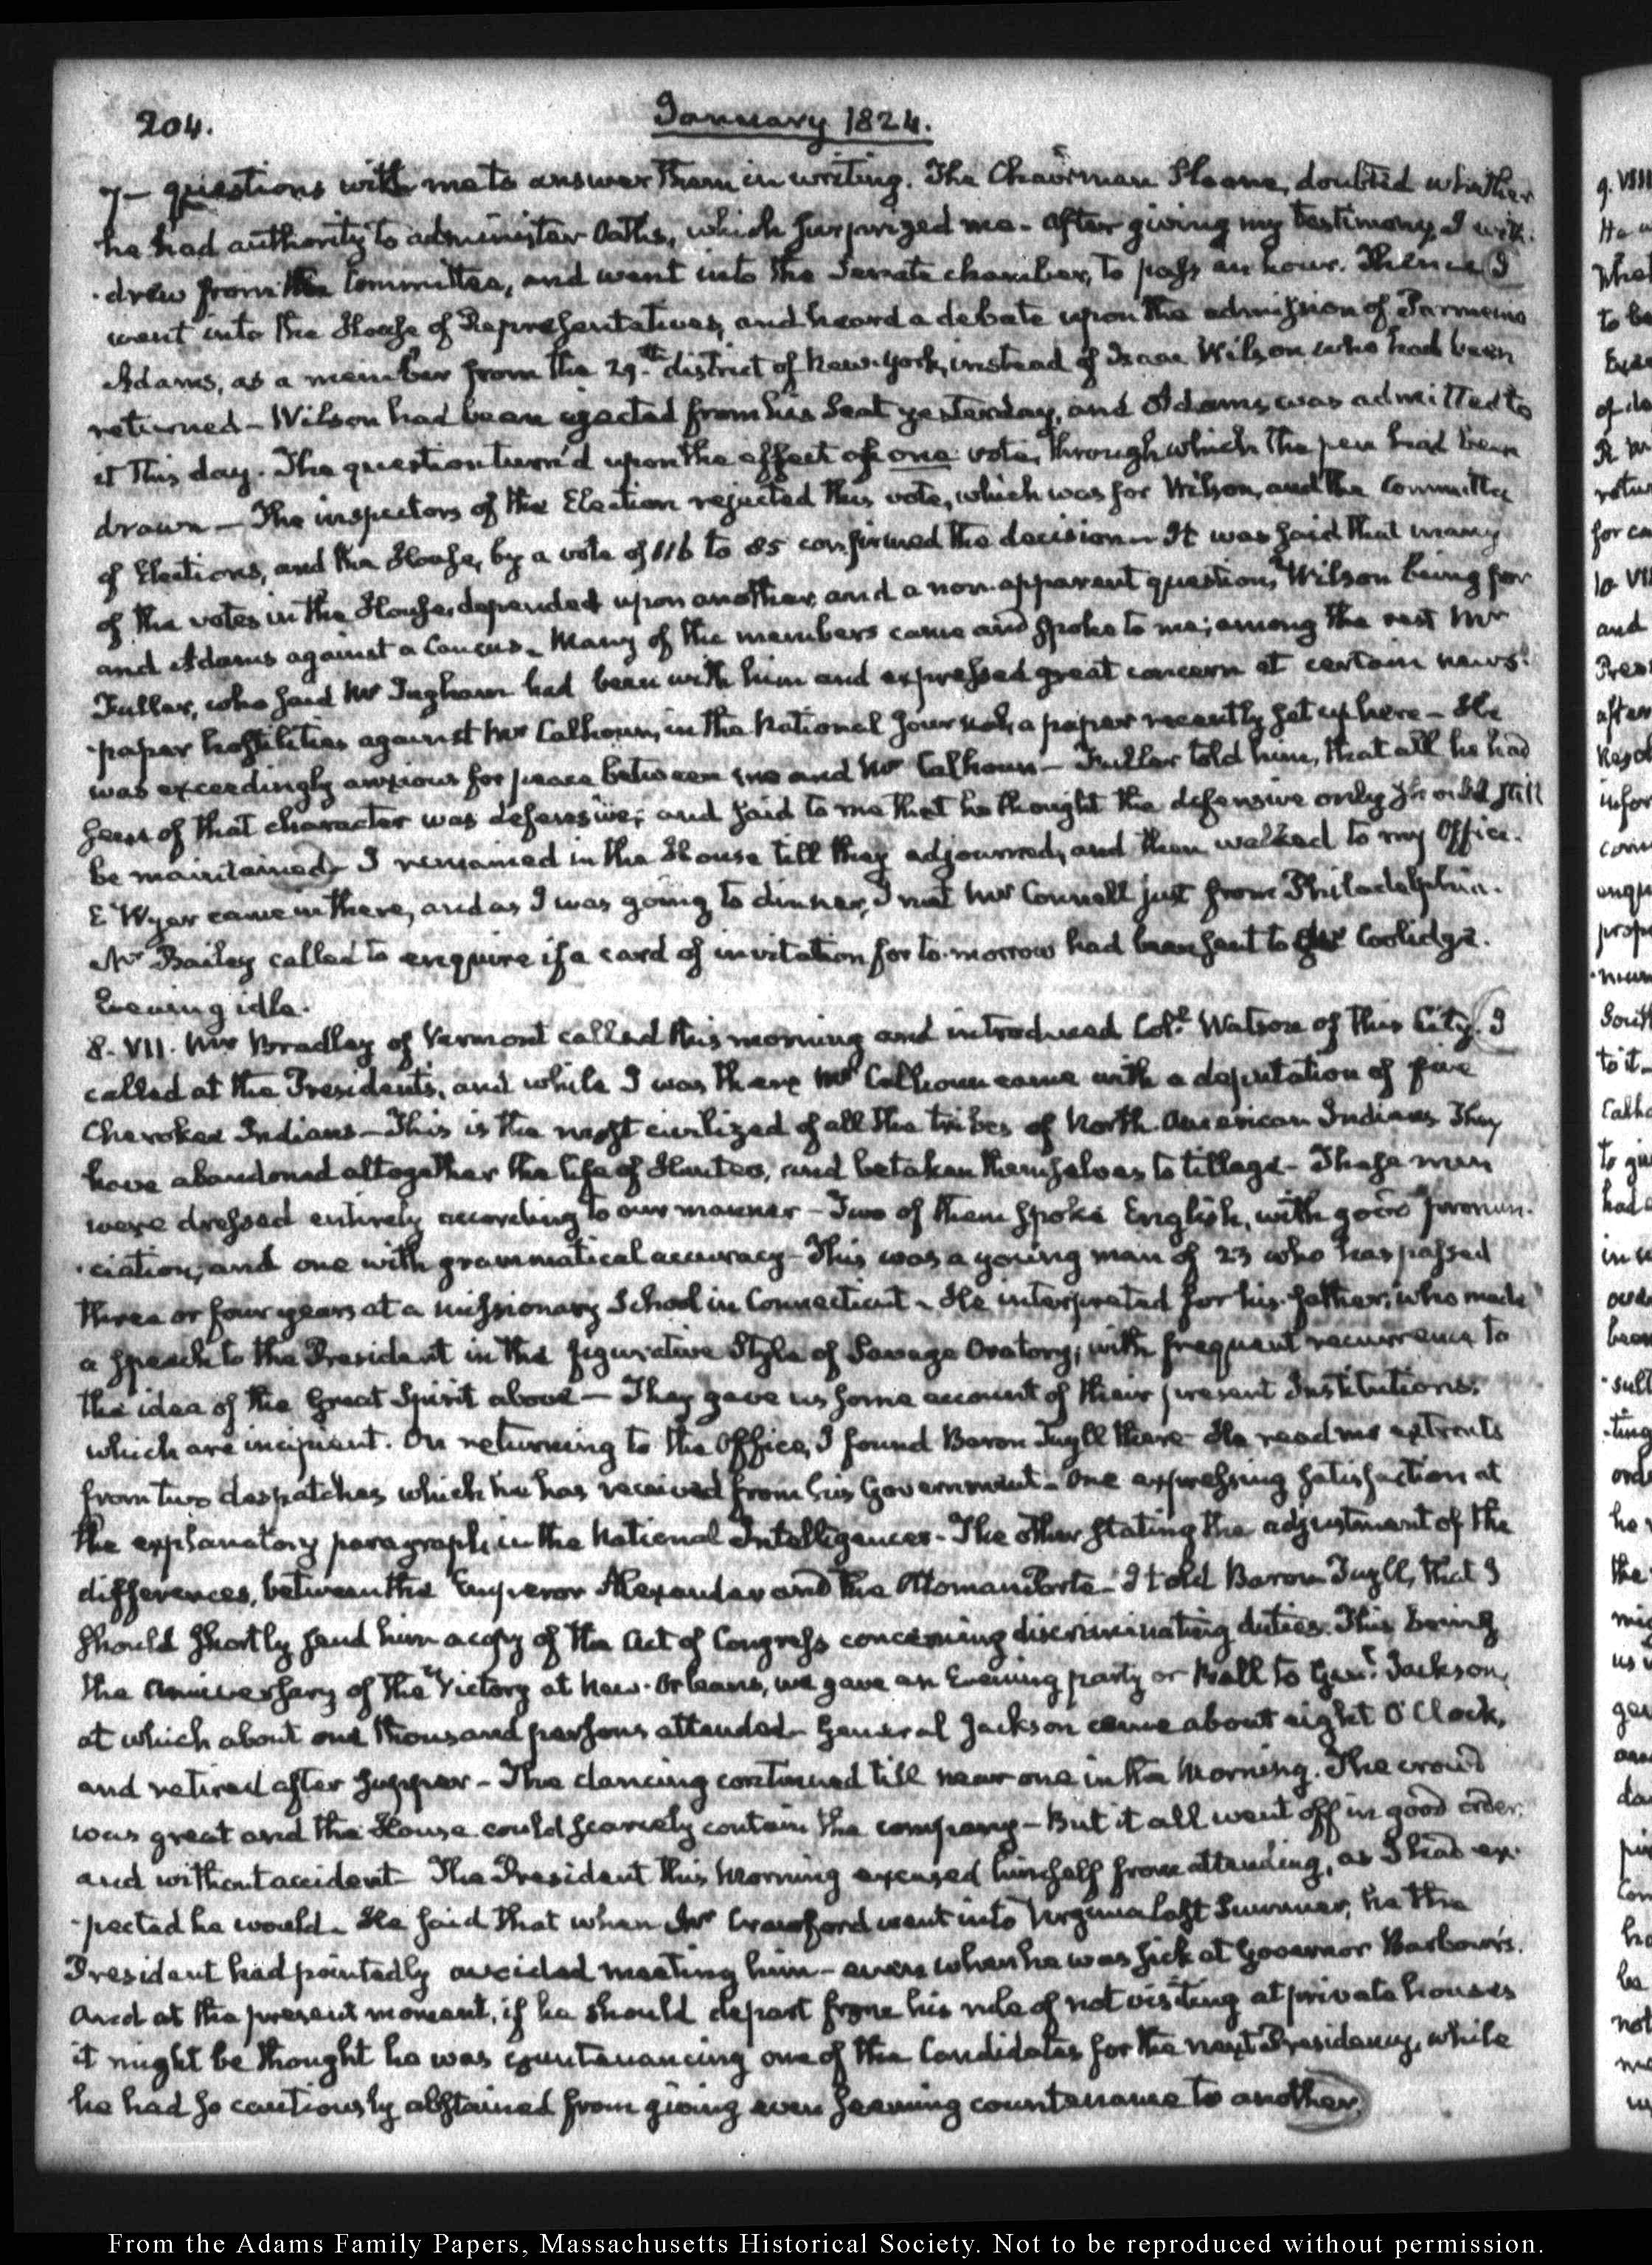 204.
January 1824.
7— questions with me to answer them in writing. The Chairman Sloane, doubted whether
he had authority to administer Oaths, which surprized me— After giving my testimony, I with-
-drew from the Committee, and went into the Senate chamber, to pass an hour. Thence I
went into the House of Representatives, and heard a debate upon the admission of Parmenio
Adams, as a member from the 29th. district of New-York, instead of Isaac Wilson who had been
returned— Wilson had been ejected from his Seat yesterday, and Adams was admitted to
it this day. The question turn'd upon the effect of one vote, through which the pen had been
drawn— The inspectors of the Election rejected this vote, which was for Wilson, and the Committee
of Elections, and the House, by a vote of 116 to 85 confirmed the decision— It was said that many
of the votes in the House, depended upon another, and a non-apparent question, Wilson being for
and Adams against a Caucus— Many of the members came and spoke to me; among the rest Mr
Fuller, who said Mr Ingham had been with him and expressed great concern at certain news-
-paper hostilities against Mr Calhoun, in the National Journal, a paper recently set up here— He
was exceedingly anxious for peace between me and Mr Calhoun— Fuller told him, that all he had
seen of that character was defensive; and said to me that he thought the defensive only should still
be maintained— I remained in the House till they adjourned, and then walked to my Office.
E Wyer came in there, and as I was going to dinner, I met Mr Connell just from Philadelphia.
Mr Bailey called to enquire if a card of invitation for to-morrow had been sent to Mr Coolidge.
Evening idle.
8. VII. Mr Bradley of Vermont called this morning and introduced Coll. Watson of this City. I
called at the Presidents, and while I was there Mr Calhoun came with a deputation of five
Cherokee Indians— This is the most civilized of all the tribes of North-American Indians. They
have abandoned altogether the life of Hunters, and betaken themselves to tillage— These men
were dressed entirely according to our manner— Two of them spoke English, with good pronun-
-ciation, and one with grammatical accuracy— This was a young man of 23 who has passed
three or four years at a missionary School in Connecticut— He interpreted for his father; who made
a speech to the President in the figurative Style of Savage Oratory; with frequent recurrence to
the idea of the Great Spirit above— They gave us some account of their present Institutions,
which are incipient. On returning to the Office, I found Baron Tuyll there— He read me extracts
from two despatches which he has received from his Government— One expressing satisfaction at
the explanatory paragraph in the National Intelligencer— The other stating the adjustment of the
differences, between the Emperor Alexander and the Ottoman Porte— I told Baron Tuyll, that I
should shortly send him a copy of the Act of Congress concerning discriminating duties. This being
the Anniversary of the Victory at New-Orleans, we gave an Evening party or Ball to Genl. Jackson,
at which about one thousand persons attended— General Jackson came about eight O'Clock,
and retired after supper— The dancing continued till near one in the Morning. The crowd
was great and the House could scarcely contain the company— But it all went off in good order,
and without accident— The President this Morning excused himself from attending, as I had ex-
-pected he would— He said that when Mr Crawford went into Virginia last Summer, he the
President had pointedly avoided meeting him— even when he was sick at Governor Barbour's.
And at the present moment, if he should depart from his rule of not visiting at private houses
it might be thought he was countenancing one of the Candidates for the next Presidency, while
he had so cautiously abstained from giving even seeming countenance to another.
From the Adams Family Papers, Massachusetts Historical Society. Not to be reproduced without permission.